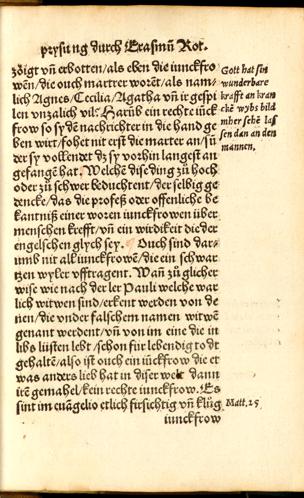 prysung durch Erasmū Rot.
zöigt vn̄ erbotten/als eben die iunckfro
wen/die ouch martrer worēt/als nam-
lich Agnes/Cecilia/Agatha vn̄ ir gespi
len vnzalich vil. Harūb ein rechte iūck
frow so sy dē nachrichter in die hand ge
ben wirt/fohet nit erst die marter an/sū
der sy vollendt dz sy vorhin langest an
gefangē hat. Welchē dise ding zů hoch
oder zů schwer beduchtent/der selbig ge
dencke/das die profeß oder offenliche be
kantniß einer woren iunckfrowen über
menschen krefft/vn̄ ein wirdikeit die der
engelschen glych sey. Ouch sind dar-
umb nit alk iunckfrowē/die ein schwar
tzen wyler vfftragent. Wan̄ zů glicher
wise wie nach der ler Pauli welche war
lich witwen sind/erkent werden von de
nen/die vnder falschem namen witwē
genant werdent/vn̄ von im eine die in
libs lüsten lebt/schon für lebendig todt
gehaltē/also ist ouch ein iūckfrow die et
was anders lieb hat in diser welt dann
irē gemahel/kein rechte iunckfrow. Es
sint im euāgelio etlich firsichtig vn̄ klůg
iunckfrow
Gott hat sin
wunderbare
krafft an kran
ckē wybs bild
mher sehē las
sen dan an den
mannen.
Matt.25